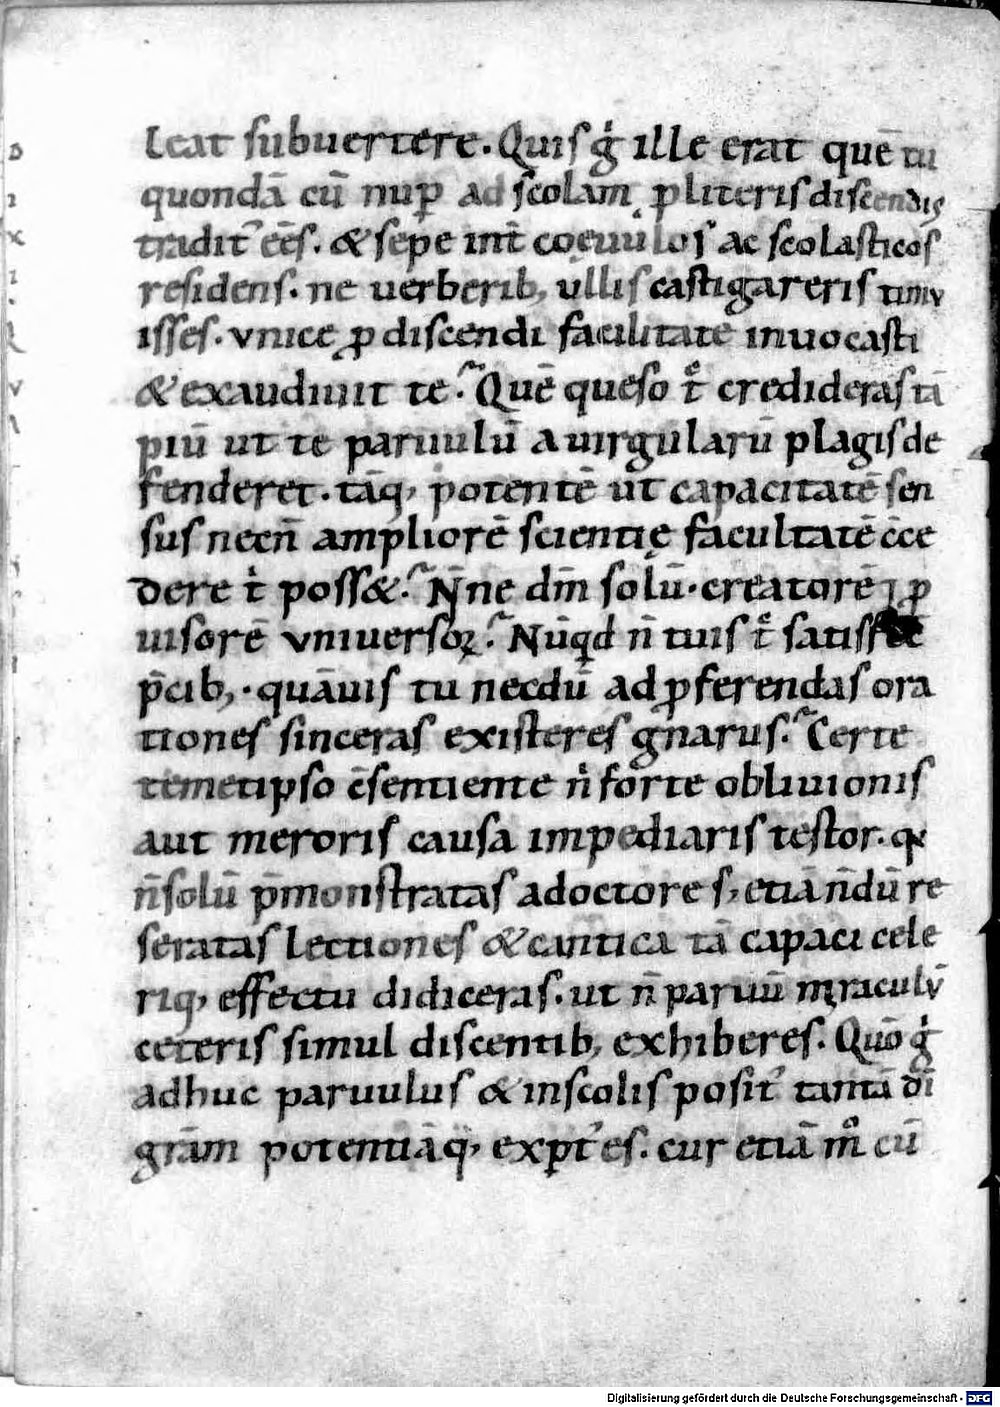 leat subuertere. Quis g̍ ille erat quē tu
quondā cū nuꝑ ad scolam ꝓ literis discendis
tradit᾽ eēs. & sepe int̄ coęuulos ac scolasticos
residens. ne uerberib; ullis castigareris timu
isses. vnice ꝓ discendi facilitate inuocasti
& exaudiuit te? Quē queso tͤ credideras tā
piū ut te paruulū a uirgularū plagis de
fenderet. tāq; potentē ut capacitatē sen
sus necn̄ ampliorē scientię facultatē c̄ce
dere t̍ poss&? N̄ne dm̄ solū. creatorē ⁊ ꝓ
uisorē vniuersoꝝ? Nūqd n̄ tuis tͤ satisfe
p̄cib;. quāuis tu necdū ad ꝓferendas ora
tiones sinceras existeres gnarus? Certe
temetipso c̄sentiente n̍ forte obliuionis
aut meroris causa impediaris testor. qͥ
n̄solū p̄monstratas adoctores, etiā n̄dū re
seratas lectiones & cantica tā capaci cele
riq; effectu didiceras. ut n̄ paruū miraculū
ceteris simul discentib; exhiberes. Quō g̍
adhuc paruulus & inscolis posit᾽ tantā dī
gr̄am potentiāq; expt᾽ es. cur etiā mͦ cū
Digitalisierung gefördert durch die Deutsche Forschungsgemeinschaft - DFG